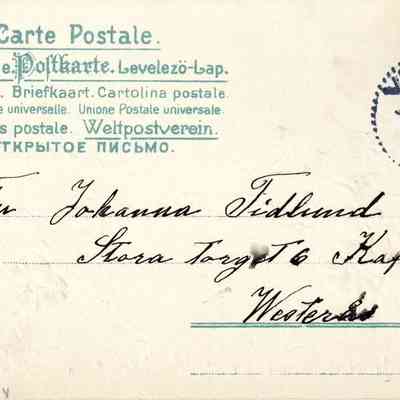 Carte Postale.
e. Postkarte. Levelező-Lap.
. Briefkaart. Cartolina postale.
e universelle. Unione Postale universale.
s postale. Weltpostverein.
ОТКРЫТОЕ ПИСЬМО.
Johanna Tidlund
Stora torget 6 Kaf
Westerås